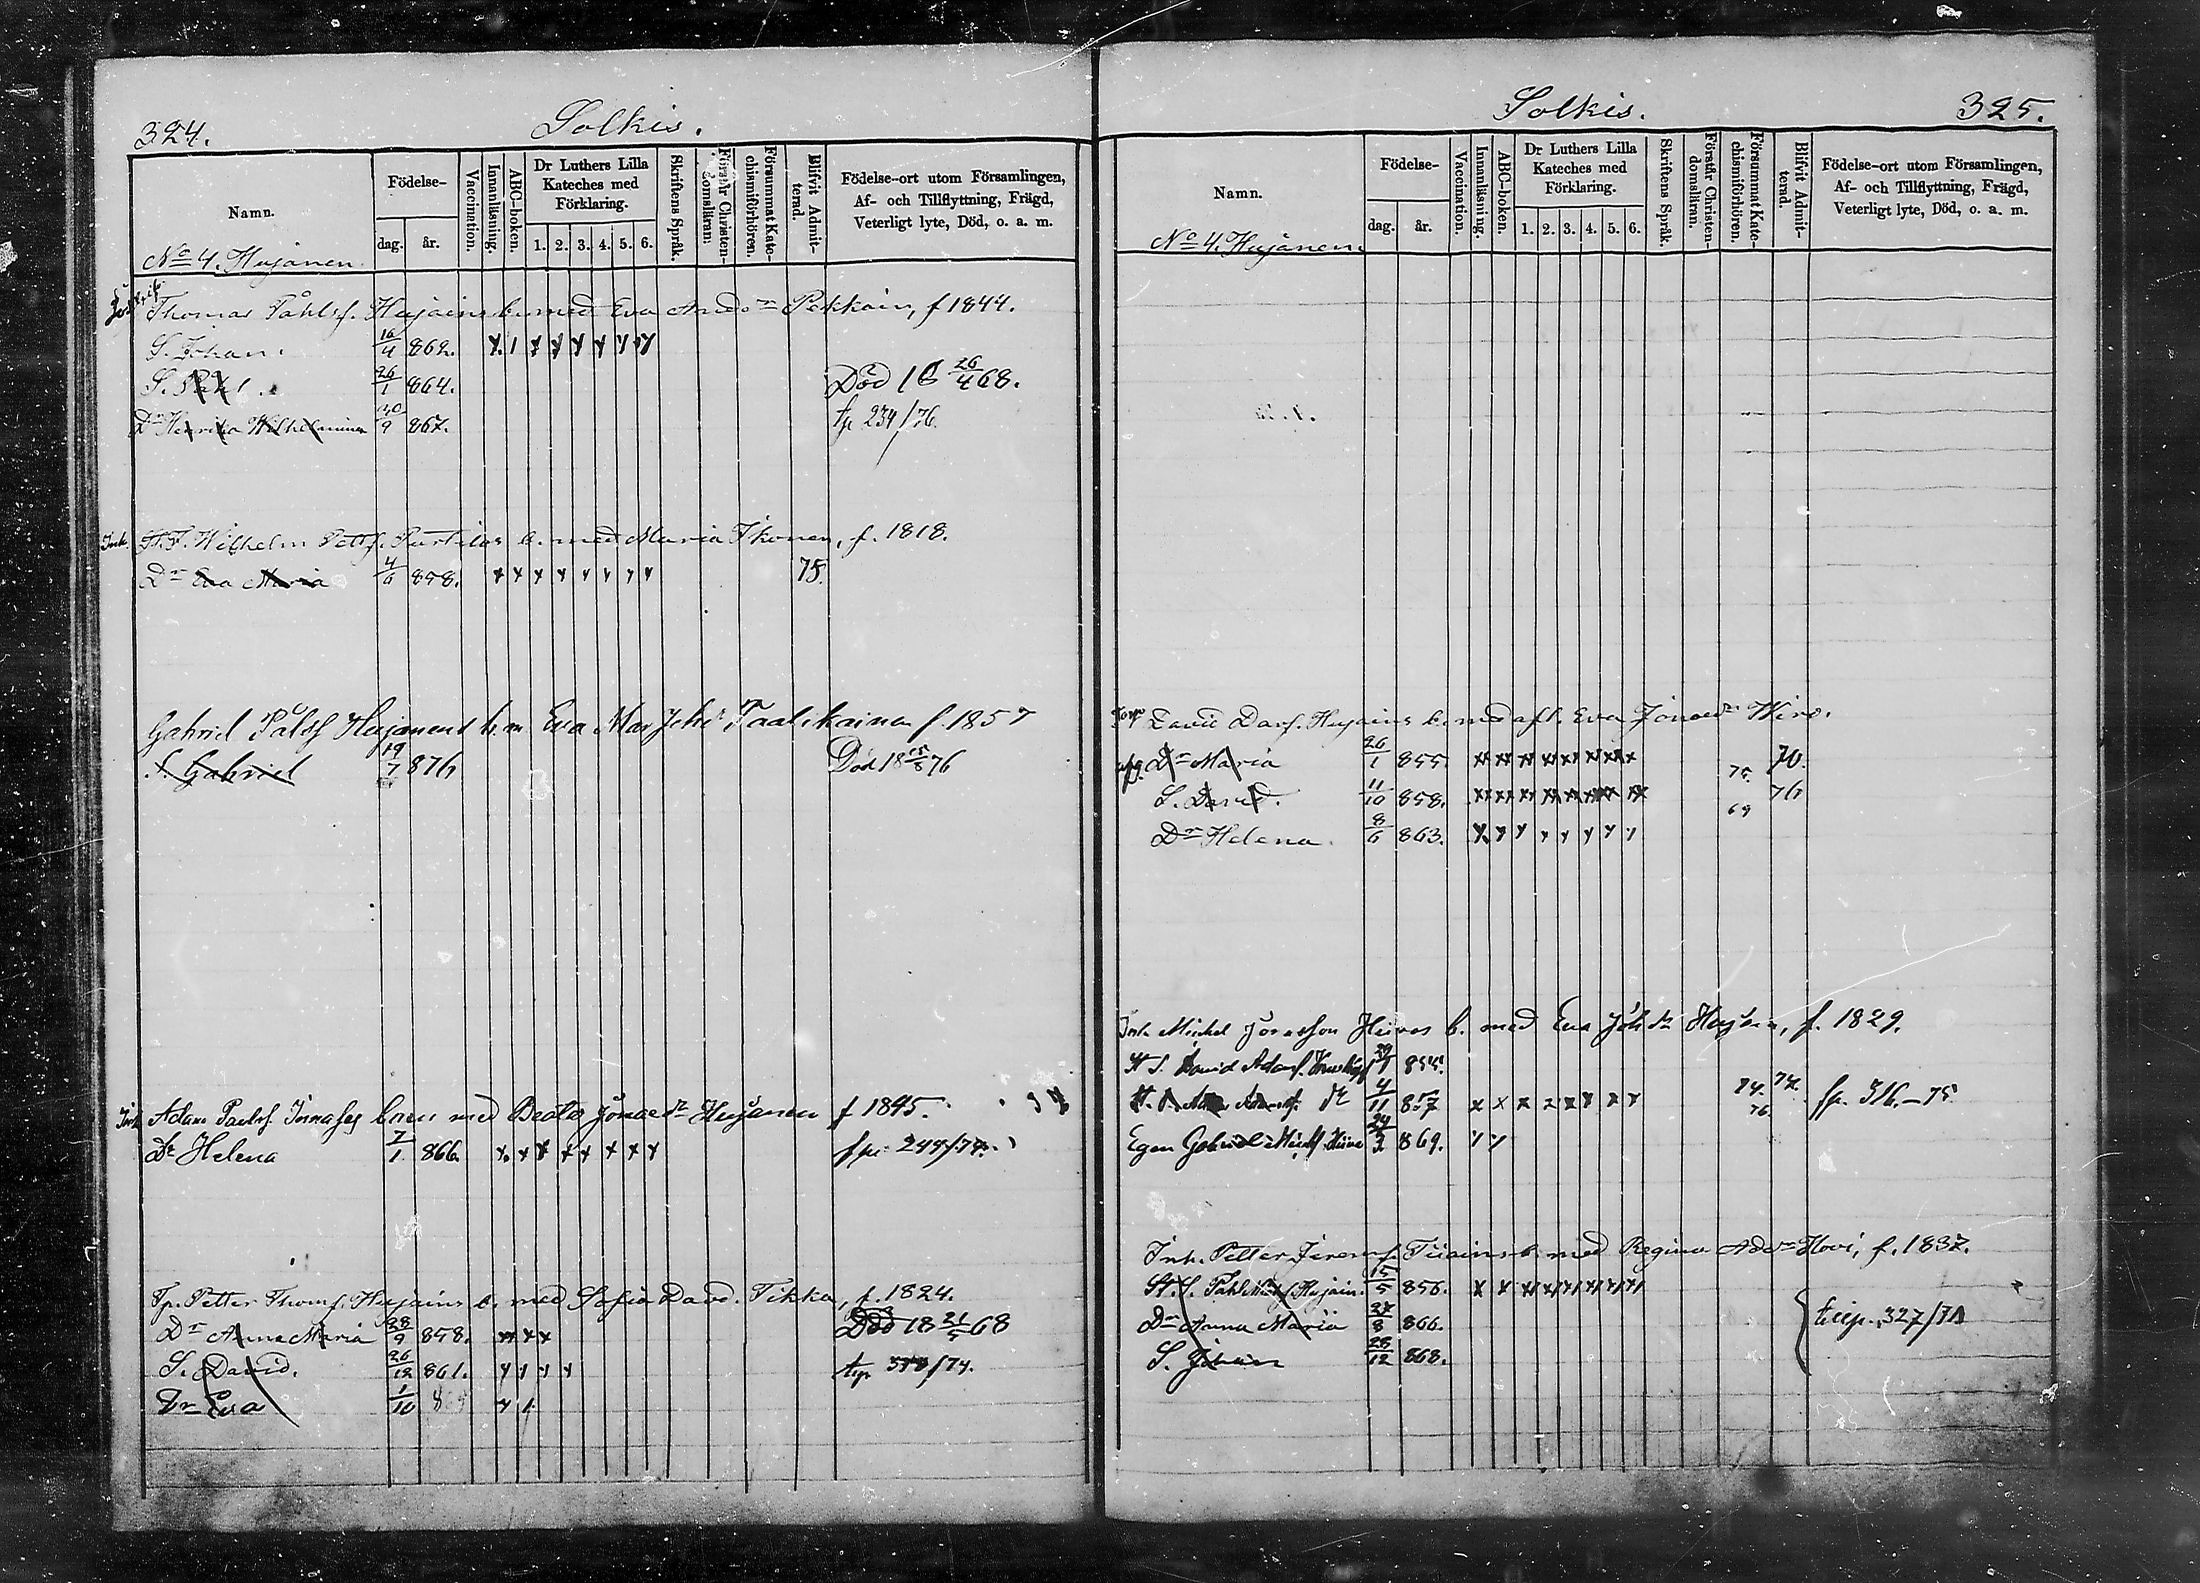 324.
Solkis.
Namn.
Födelse-
dag.
år.
Vaccination.
Innanläsning.
ABC-boken.
Dr Luthers Lilla Kateches med Förklaring.
1. 2. 3. 4. 5. 6.
Skriftens Språk.
Förstår Christendomsläran.
Försummat Katechismiförhören.
Blifvit Admitterad.
Födelse-ort utom Församlingen,
Af- och Tillflyttning, Frägd,
Veterligt lyte, Död, o. a. m.
No 4. Hujanen.
Thomas Påhlsf. Hujains b. med Eva And. dr Pekkain, f 1844.
S. Johan. 16/4 862. x 1 x x x x x x
S. Påhl. 26/1 864. Död 18 26/4 68.
Dr Henrika Wilhelmina 30/9 867. fp 234/76.
Inh. Wilhelm Pettf. Partilas b. med Maria Ikonen, f. 1818.
Dr Eva Maria 4/6 858. x x x x x x x x 75.
Gabriel Pålsf Hujanens b. m Eva Mar Johdr Taalikainen f. 1857
S. Gabriel 19/7 876 Död 18 15/8 76
Inh Adam Paulsf. b med Beata Jonae dr Hujanen f 1845.
Dr Helena 7/1 866. x x x x x x x x fp. 244/77.
Tp. Petter Thomf. Hujains b. med Sofia David. Tikka, f. 1824.
Dr Anna Maria 28/9 858. x x x Död 18 21/5 68
S. David. 26/12 861. x x x x
Dr Eva 1/10
Solkis.
325.
Namn.
Födelse-
dag.
år.
Vaccination.
Innanläsning.
ABC-boken.
Dr Luthers Lilla Kateches med Förklaring.
1. 2. 3. 4. 5. 6.
Skriftens Språk.
Förstår Christendomsläran.
Försummat Katechismiförhören.
Blifvit Admitterad.
Födelse-ort utom Församlingen,
Af- och Tillflyttning, Frägd,
Veterligt lyte, Död, o. a. m.
No 4. Hujanen.
Torp David Davf. Hujains b. med afl. Eva Jonae dr Hirv.
Dr Maria 26/1 855. 75. 70.
S. David. 11/10 858. 69 76
Dr Helena. 8/6 863.
Inh. Michel Jonasson b. med Eva Joh dr Hujain, f. 1829.
H. S. David Adamf. 855.
4/11 857 x x x x x x x x 74. 76. 77. fp. 316.–75
Egen Gabriel Michf. 24/3 869.
Inh. Petter Jeremf. Tiiainen b. med Regina Ad dr Hovi, f. 1837.
St. S. Påhl Hujain. 15/5 856.
Dr Anna Maria 27/8 866.
S. Johan 28/12 868.
327/71